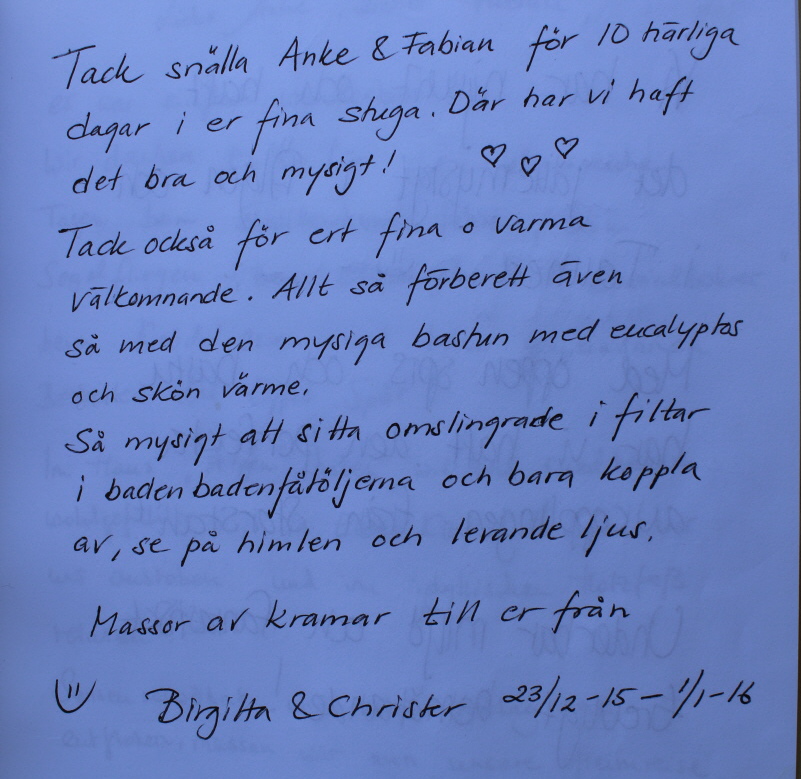 Tack snälla Anke & Fabian för 10 härliga
dagar i er fina stuga. Där har vi haft
det bra och mysigt! ♡ ♡ ♡
Tack också för ert fina o varma
välkomnande. Allt så förberett även
så med den mysiga bastun med eucalyptos
och skön värme.
Så mysigt att sitta omslingrade i filtar
i baden badenfåtöljerna och bara koppla
av, se på himlen och lerande ljus.
Massor av kramar till er från
Birgitta & Christer 23/12-15 – 1/1-16